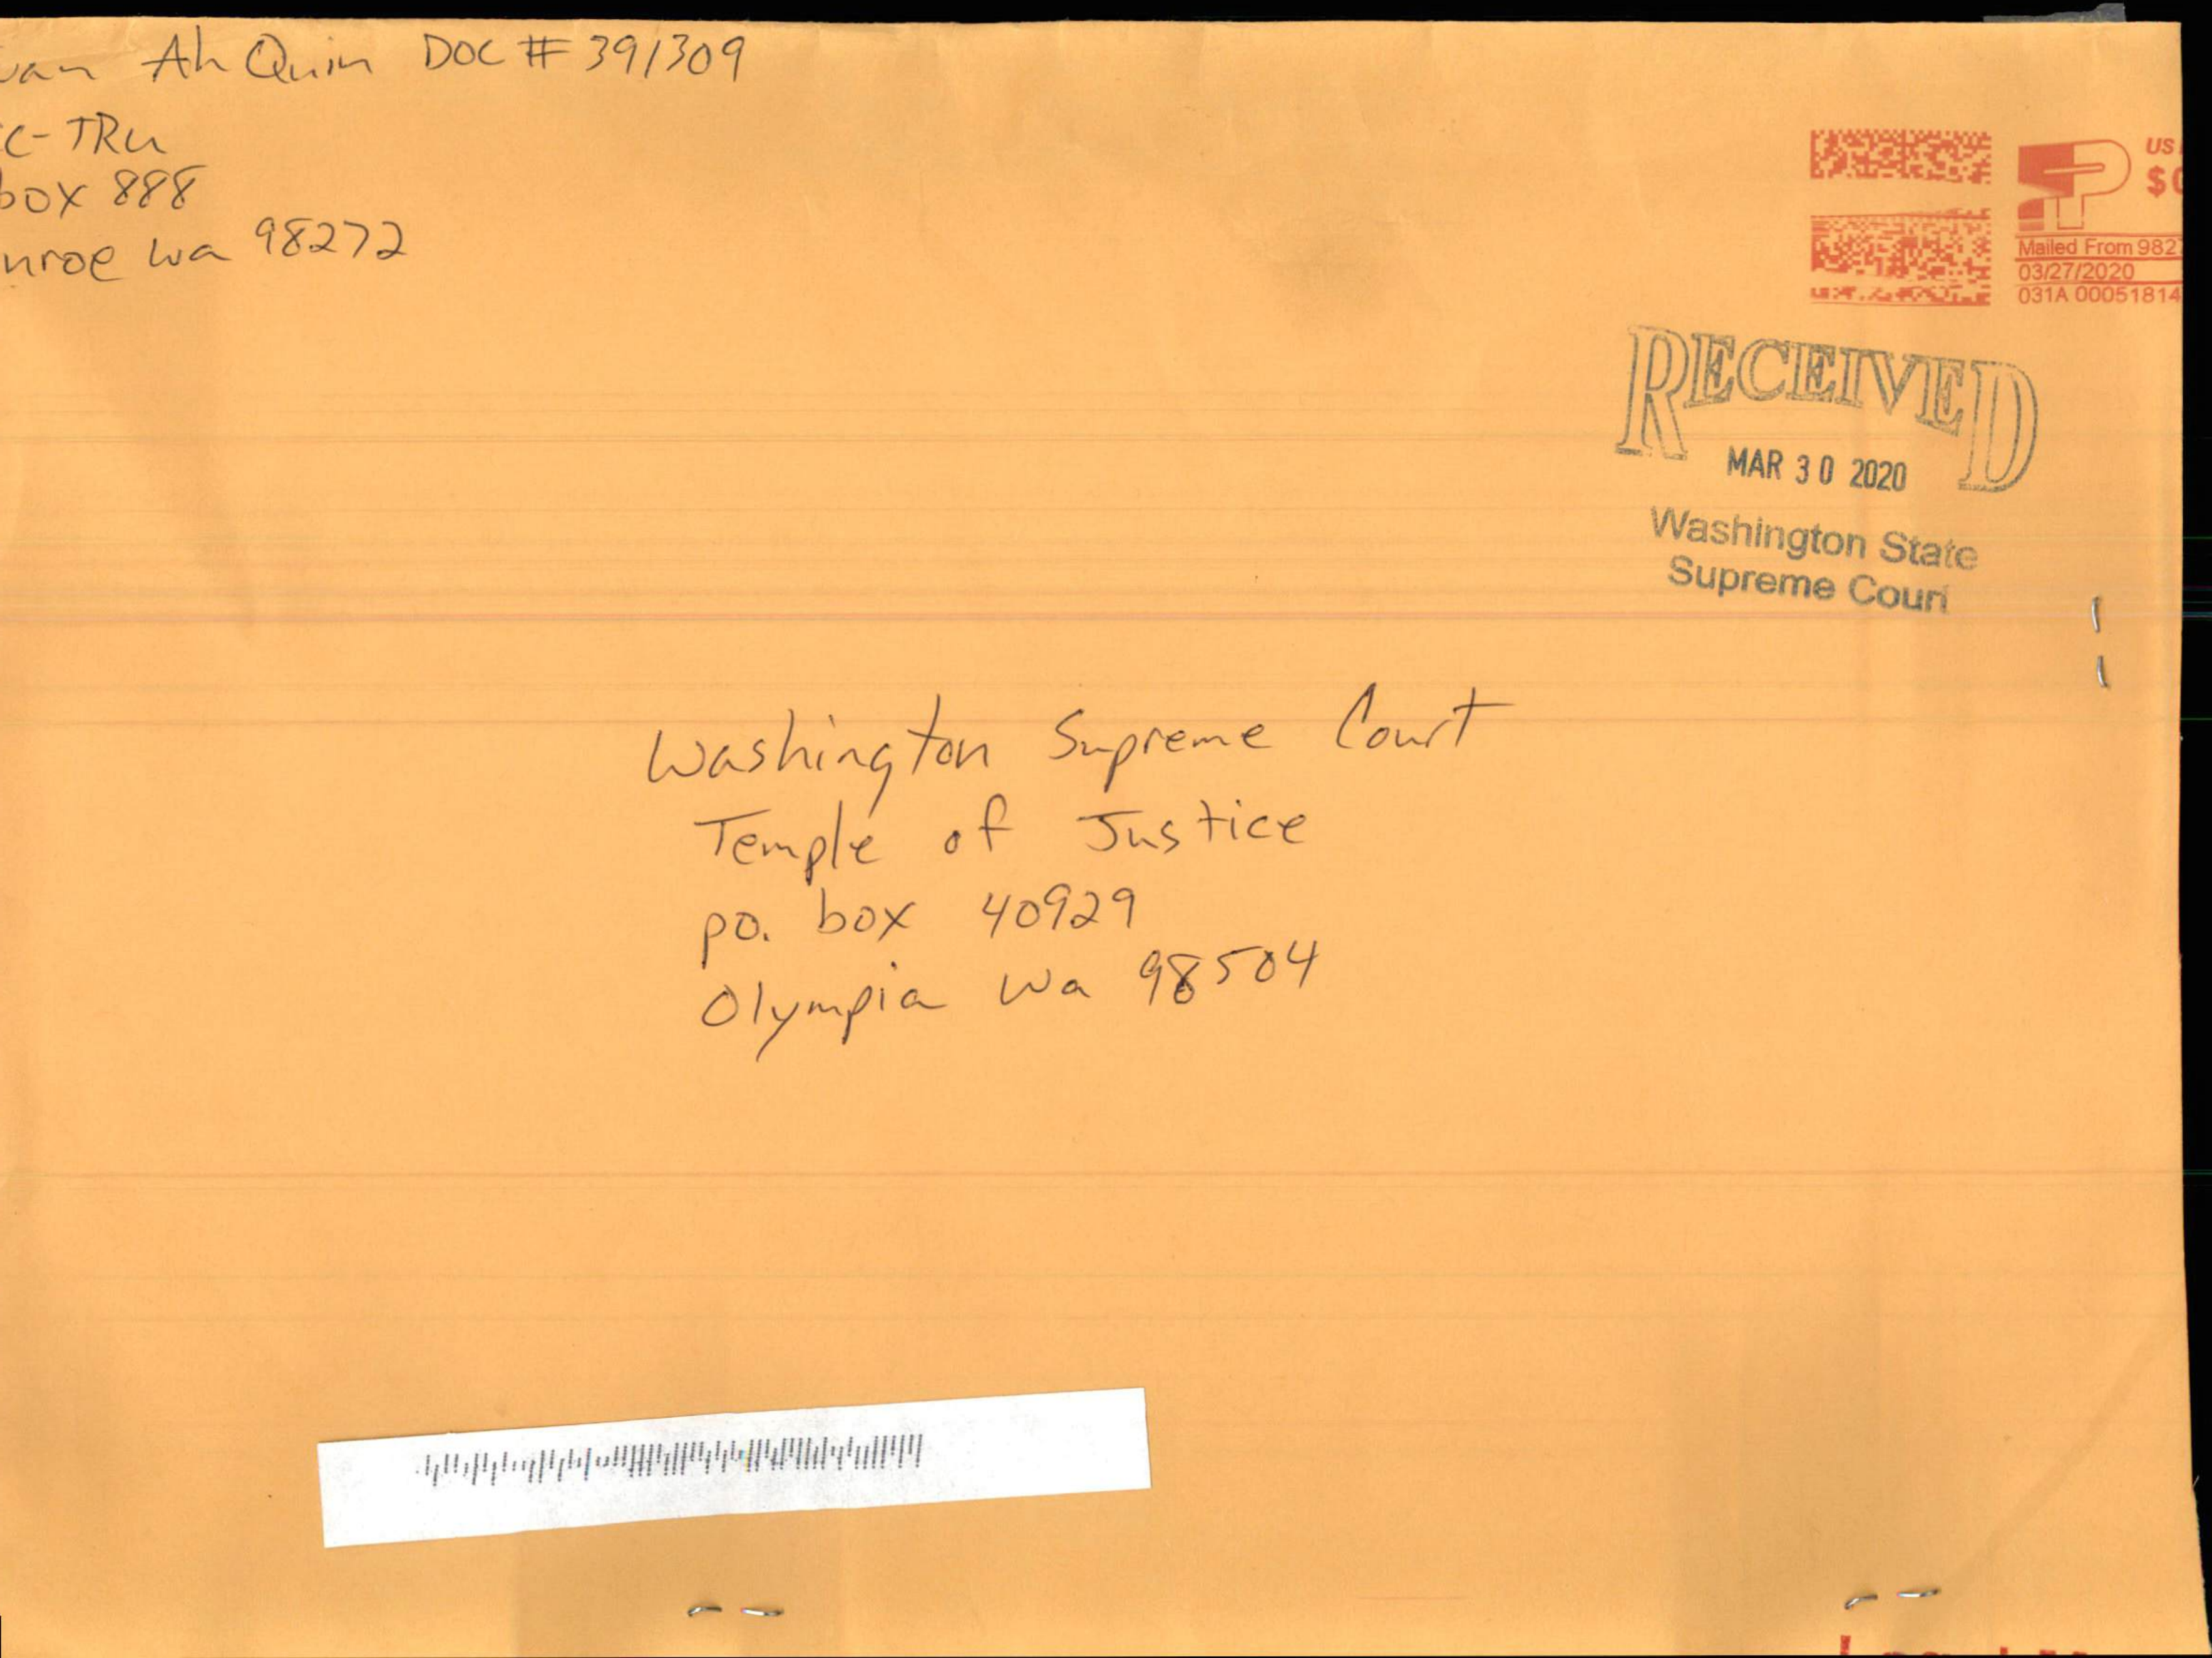 Ah Quin DOC # 391309
C-TRU
box 888
nroe Wa 98272
US
$0
Mailed From 982
03/27/2020
031A 00051814
RECEIVED
MAR 30 2020
Washington State
Supreme Court
Washington Supreme Court
Temple of Justice
po. box 40929
Olympia Wa 98504